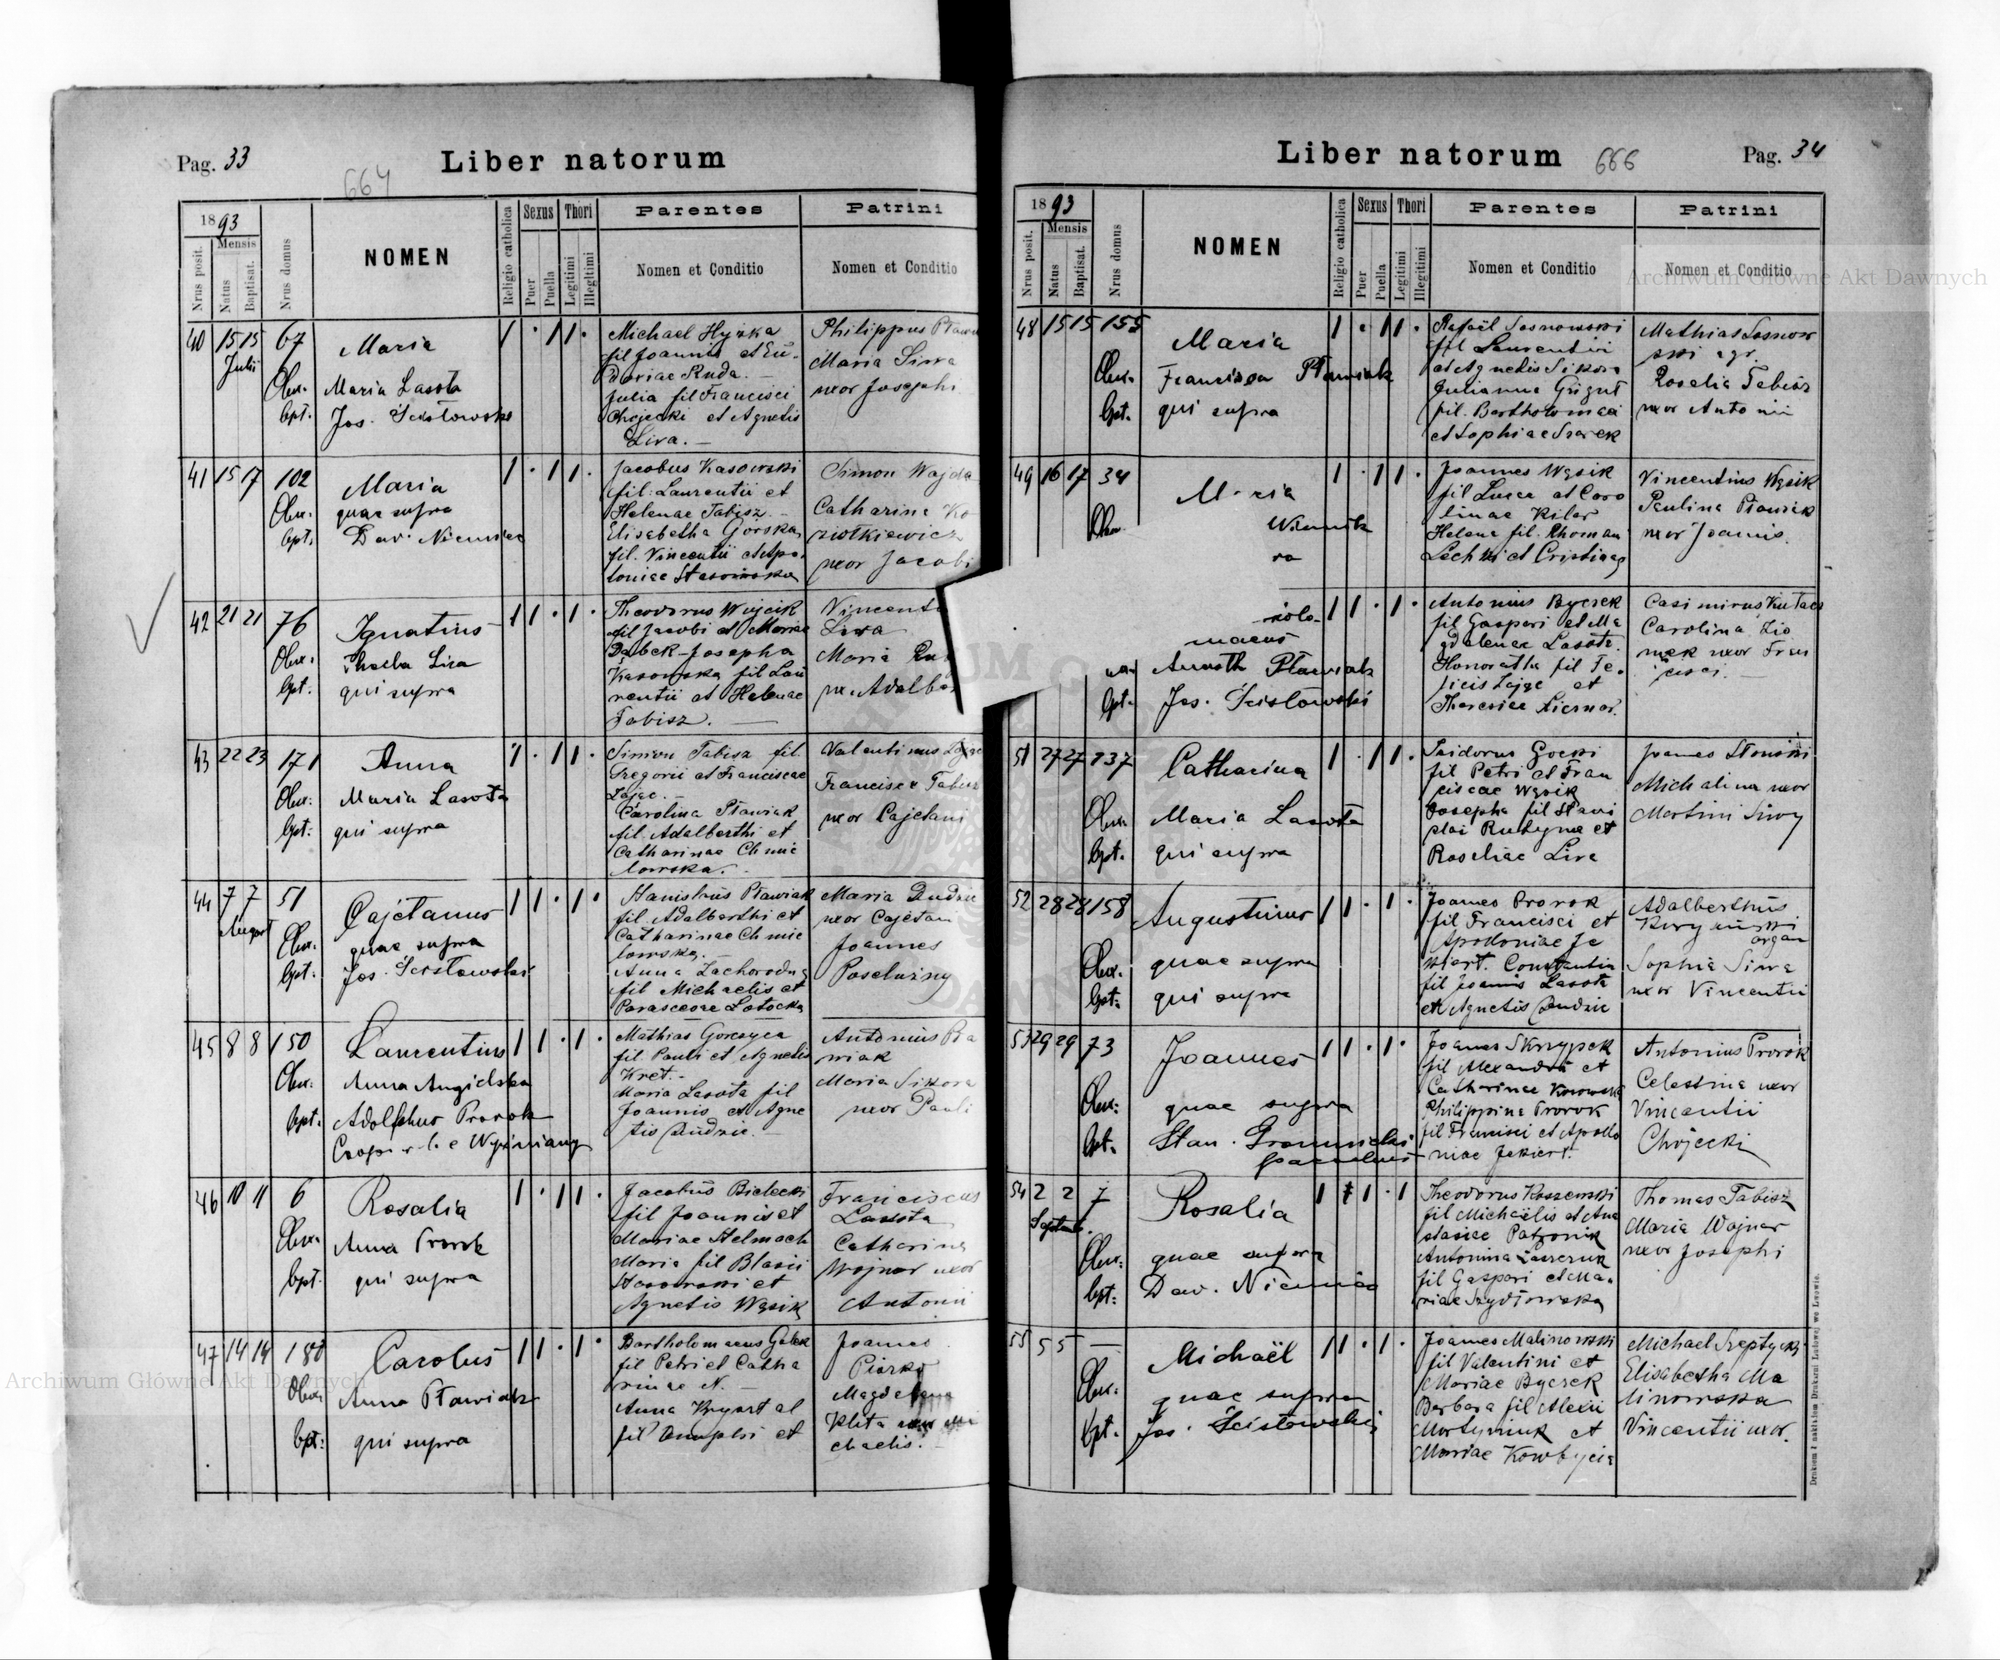 Pag. 33
664
Liber natorum
1893
Mensis
Nrus posit.
Natus
Baptisat.
Nrus domus
NOMEN
Religio catholica
Sexus
Puer
Puella
Thori
Legitimi
Illegitimi
Parentes
Nomen et Conditio
Patrini
Nomen et Conditio
40 15 15 67
Julii
Obst.
bpt.
Maria
Maria Lasota
Jos. Scisłowski
1 · 1 1 ·
Michael Hyska
fil Joannis et Eu-
doxiae Ruda. —
Julia fil Francisci
Chojecki et Agnetis
Liva. —
Philippus
Maria Siwa
uxor Josephi
41 15 17 102
Obst.
bpt.
Maria
quae supra
Dav. Niemiec
1 · 1 1 ·
Jacobus Kasowski
fil. Laurentii et
Helenae Tabisz. —
Elisabetha Górska
fil. Vincentii et Apo-
loniae Stasowska
Simon Wajda
Catharina Ko
ziołkiewicz
uxor Jacobi
42 21 21 76
Obst.
bpt.
Ignatius
Thecla Liva
qui supra
1 1 · 1 ·
Theodorus Wójcik
fil Jacobi et Mariae
Dąbek - Josepha
Kasowska fil Lau
rentii et Helenae
Tabisz. —
Vincent
Liva
Maria
ux. Adalb
43 22 23 171
Obst.
bpt.
Anna
Maria Lasota
qui supra
1 · 1 1 ·
Simon Tabisz fil
Gregorii et Franciscae
Zając. —
Carolina Pławiak
fil. Adalberthi et
Catharinae Chmie
lowska.
Valentinus Zając
Francisca Tabisz
uxor Cajetani
44 7 7 51
August
Obst.
bpt.
Cajetanus
quae supra
Jos. Scisłowski
1 1 · 1 ·
Stanislaus Pławiak
fil. Adalberthi et
Catharinae Chmie
lowska.
Anna Zachorodna
fil Michaelis et
Parascevae Łotocka
Maria Dudzic
uxor Cajetani
Joannes
Posełużny
45 8 8 150
Obst.
bpt.
Laurentius
Anna Angielska
Adolphus Prorok
1 1 · 1 ·
Mathias Gorczyca
fil Pauli et Agnetis
Kret. —
Maria Lasota fil
Joannis et Agne
tis Dudzic. —
Antonius Pła
wiak
Maria Sikora
uxor Pauli
46 10 11 6
Obst.
bpt.
Rosalia
Anna Prorok
qui supra
1 · 1 1 ·
Jacobus Bielecki
fil Joannis et
Mariae Stelmach
Maria fil Blasii
Kasowski et
Agnetis Wąsik
Franciscus
Lassota
Catharina
Wojnar uxor
Antonii
47 14 14 180
Obst.
bpt.
Carolus
Anna Pławiak
qui supra
1 1 · 1 ·
Bartholomaeus Gałek
fil Petri et Catha
rinae N. —
Anna
fil Onuphri et
Joannes
Piorko
Magdalena
Klita
chaelis. —
Liber natorum
666
Pag. 34
1893
Mensis
Nrus posit.
Natus
Baptisat.
Nrus domus
NOMEN
Religio catholica
Sexus
Puer
Puella
Thori
Legitimi
Illegitimi
Parentes
Nomen et Conditio
Patrini
Nomen et Conditio
48 15 15 155
Obst.
bpt.
Maria
Francisca Pławiak
qui supra
1 · 1 1 ·
Rafaël Sosnowski
fil Laurentii
et Agnetis Sikora
Julianna Grigut
fil. Bartholomaei
et Sophiae
Mathias Sosnow
ski agr.
Rosalia Tabisz
uxor Antonii
49 16 17 34
Maria
Winnik
ra
1 · 1 1 ·
Joannes Wąsik
fil Lucae et Caro
linae Kiler
Helena fil. Thomae
Lech et
Vincentius Wąsik
Paulina Pławiak
uxor Joannis.
tholo-
maeus
Annath Pławiak
bpt. Jos. Scisłowski
1 1 · 1 ·
Antonius Byczek
fil Gaspari et Ma
gdalenae Lasota.
Honoratha fil Fe-
licis Zając et
Theresiae
Casimirus
Carolina Zio
mek uxor Fran
cisci. —
51 27 27 137
Obst.
bpt.
Catharina
Maria Lasota
qui supra
1 · 1 1 ·
Isidorus Gocki
fil Petri et Fran
ciscae Wąsik
Josepha fil Stani
slai Rudyma et
Rosaliae Liva
Joannes Słoński
Michalina uxor
Martini Siwy
52 28 28 158
Obst.
bpt.
Augustinus
quae supra
qui supra
1 1 · 1 ·
Joannes Prorok
fil Francisci et
Apolloniae Je
kiert. Constantia
fil Joannis Lasota
et Agnetis Dudzic
Adalberthus
organ
Sophia Siwa
uxor Vincentii
53 29 29 73
Obst.
bpt.
Joannes
quae supra
Stan. Gromnicki
parochus
1 1 · 1 ·
Joannes Skrzypek
fil Alexandri et
Catharinae
Philippina Prorok
fil Francisci et Apollo
niae Jekiert.
Antonius Prorok
Celestina uxor
Vincentii
Chojecki
54 2 2 7
Septemb.
Obst.
bpt.
Rosalia
quae supra
Dav. Niemiec
Theodorus Kossowski
fil Michaëlis et Ana
stasiae Patronik
Antonina
fil Gaspari et Ma-
riae Szydłowska
Thomas Tabisz
Maria Wojnar
uxor Josephi
55 5 5 —
Obst.
bpt.
Michaël
quae supra
Jos. Scisłowski
1 1 · 1 ·
Joannes Malinowski
fil Valentini et
Mariae Byczek
Barbara fil Alexii
Martyniuk et
Mariae
Michael Szeptycki
Elisabetha Ma
linowska
Vincentii uxor.
Drukiem i nakładem Drukarni Ludowej we Lwowie.
Archiwum Główne Akt Dawnych
Archiwum Główne Akt Dawnych